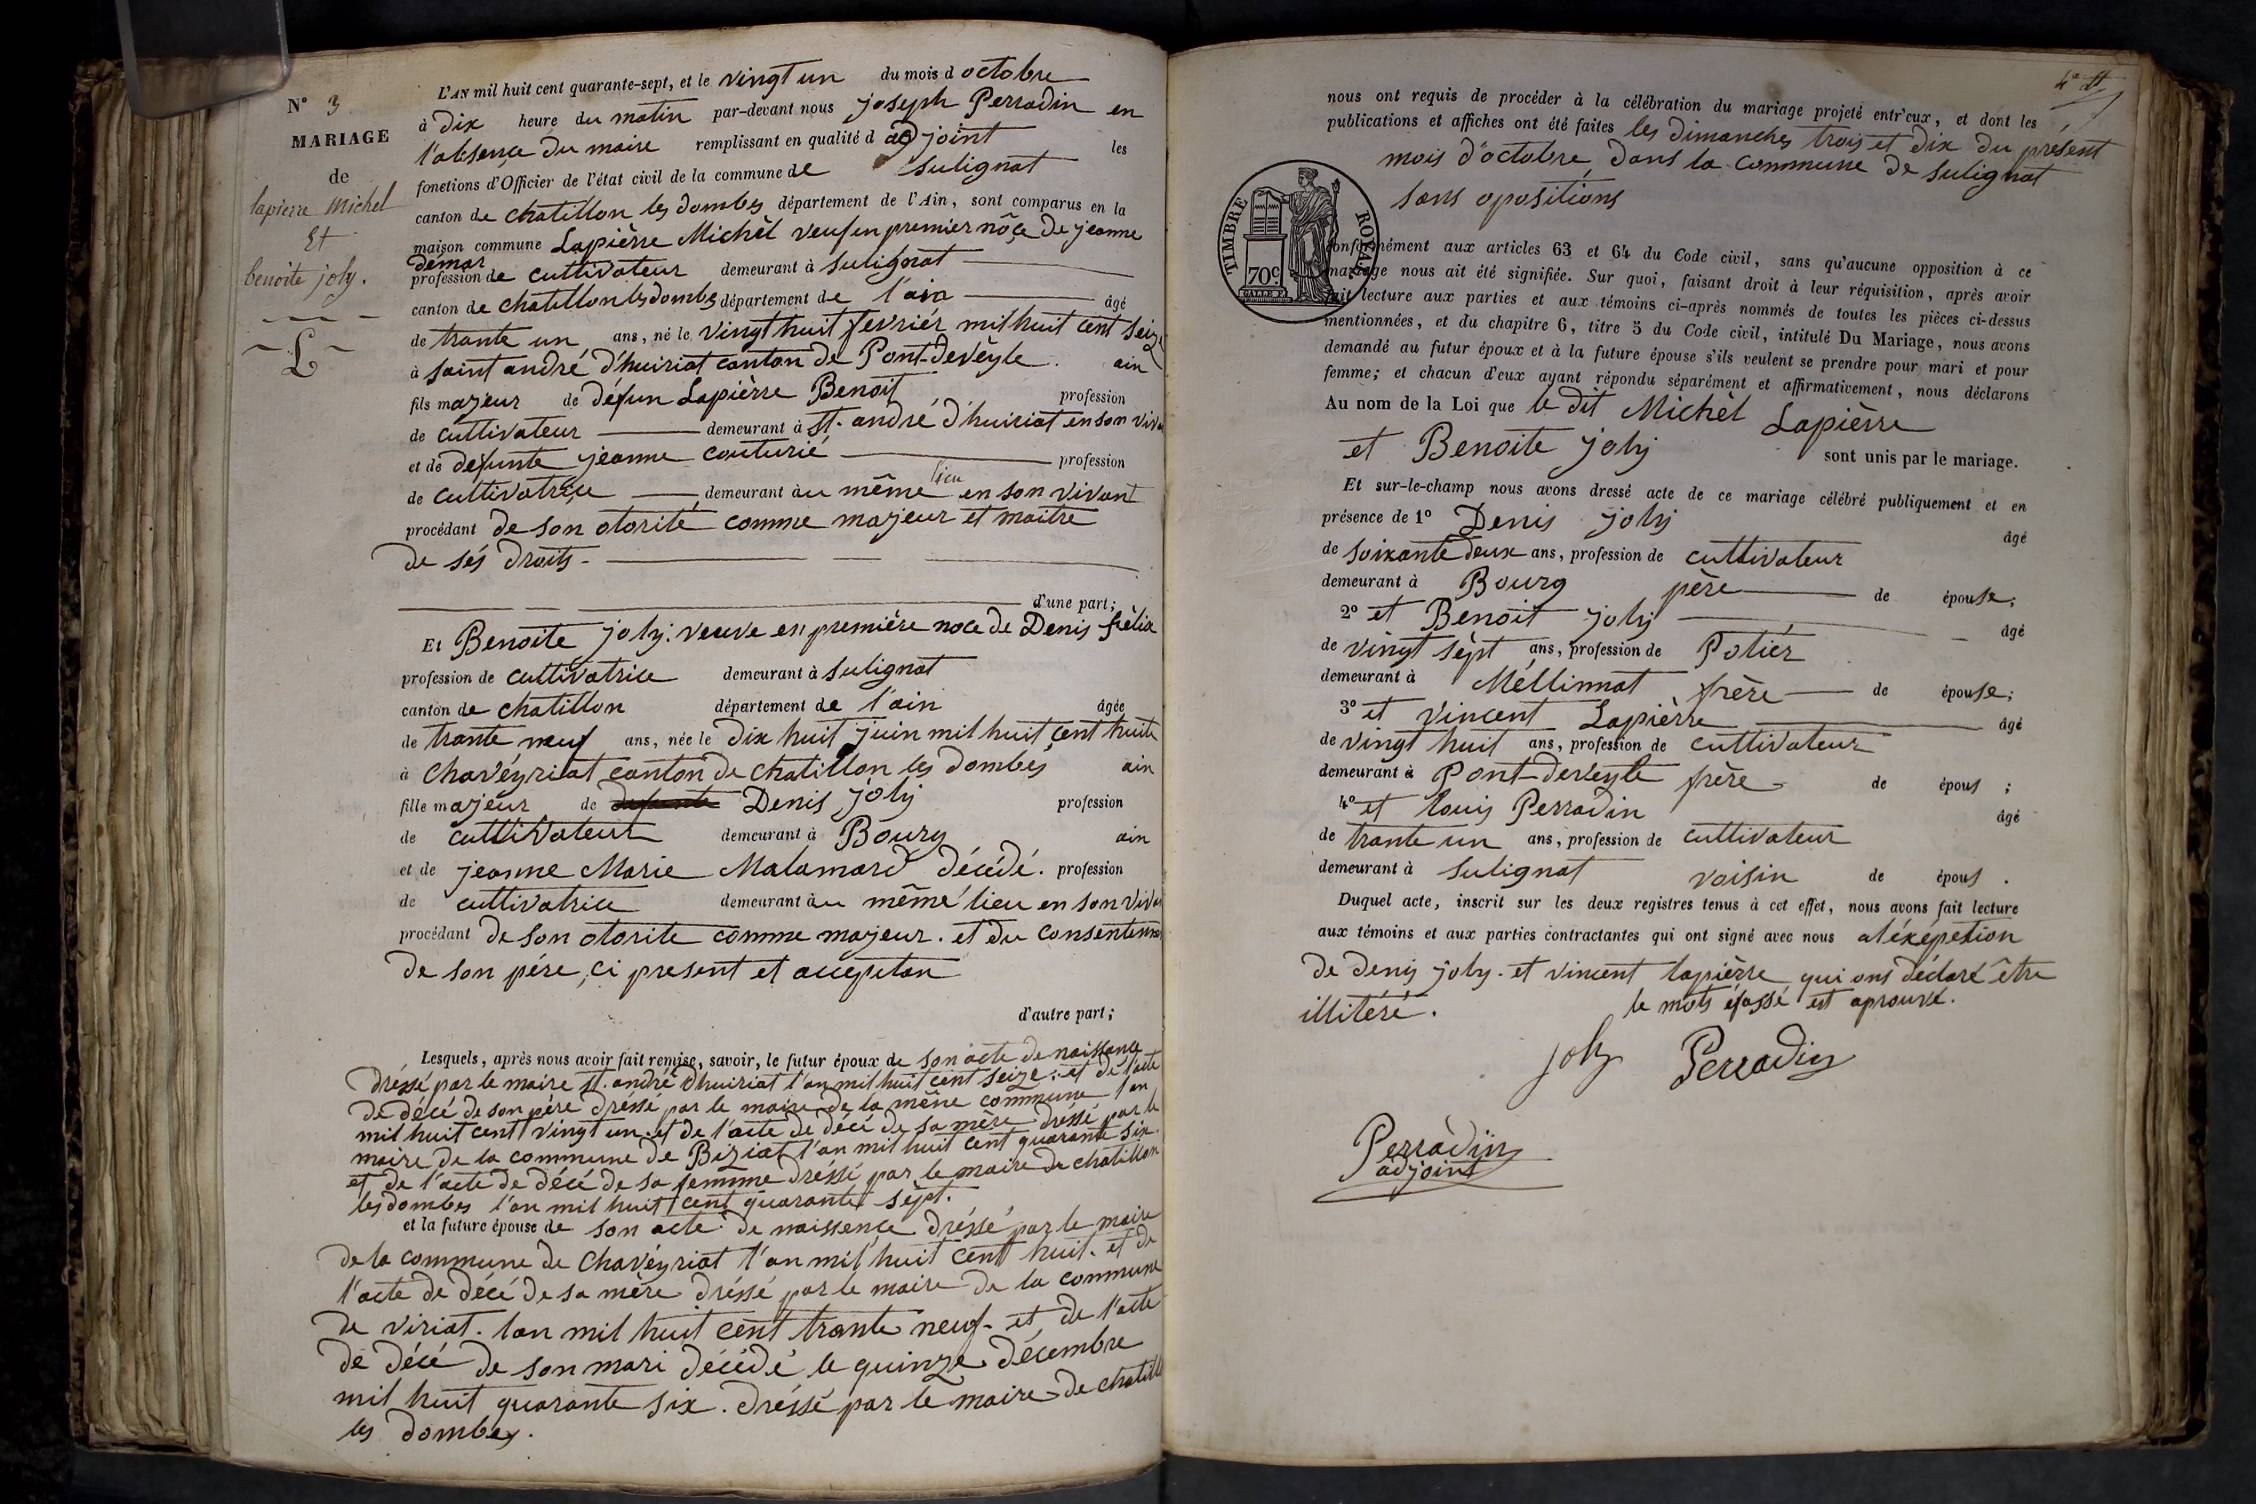 N° 3
MARIAGE
de
lapierre Michel
Et
benoite joly.
L
L'AN mil huit cent quarante-sept, et le vingt un du mois d octobre
à dix heure du matin par-devant nous joseph Perradin en
l'absençe du maire remplissant en qualité d adjoint les
fonctions d'Officier de l'état civil de la commune de Sulignat
canton de chatillon les dombes département de l'Ain, sont comparus en la
maison commune Lapièrre Michèl veuf en premier nôçe de jeanne
démar
profession de cultivateur demeurant à Sulignat
canton de chatillon les dombes département de l'ain âgé
de trante un ans, né le vingt huit fevriér mil huit cent seize
à saint andré d'huiriat canton de Pont-devèyle. ain
fils majeur de défun Lapièrre Benoit profession
de cultivateur demeurant à St. andré d'huiriat en son viva
et de defunte jeanne couturié profession
de cultivatriçe demeurant au même lieu en son vivant
procédant de son otorité comme majeur et maitre
de sés droits.
d'une part;
Et Benoite joly. veuve en première noce de Denis félix
profession de cultivatrice demeurant à Sulignat
canton de chatillon département de l'ain âgée
de trante neuf ans, née le dix huit juin mil huit çent huite
à chavéyriat canton de chatillon les dombes ain
fille majeur de defunte Denis joly profession
de cultivateur demeurant à Bourg ain
et de jeanne Marie Malamard décédé. profession
de cultivatrice demeurant au même lieu en son viva
procédant de son otorite comme majeur. et du consenteme
de son pére, ci present et acceptan
d'autre part;
Lesquels, après nous avoir fait remise, savoir, le futur époux de son acte de naissance
dréssé par le maire St. andré d'huiriat l'an mil huit cent seize. et de l'acte
de décé de son père dréssé par le maire de la même commune l'an
mil huit cent vingt un. et de l'acte de décé de sa mère dréssé par le
maire de la commune de Biziat l'an mil huit cent quarante six.
et de l'acte de décé de sa femme dréssé par le maire de chatillon
les dombes l'an mil huit cent quarante sèpt.
et la future épouse de son acte de naissençe dréssé par le maire
de la commune de chavéyriat l'an mil huit cent huit. et de
l'acte de décé de sa mère dréssé par le maire de la commune
de viriat. lan mil huit cent trante neuf. et de l'acte
de décé de son mari décédé le quinze décembre
mil huit quarante six. dréssé par le maire de chatill
les dombes.
4e ff
nous ont requis de procéder à la célébration du mariage projeté entr'eux, et dont les
publications et affiches ont été faites les dimanches trois et dix du présent
mois d'octobre dans la commune de Sulignat
sans opositions
TIMBRE ROYAL
70c.
conformément aux articles 63 et 64 du Code civil, sans qu'aucune opposition à ce
mariage nous ait été signifiée. Sur quoi, faisant droit à leur réquisition, après avoir
fait lecture aux parties et aux témoins ci-après nommés de toutes les pièces ci-dessus
mentionnées, et du chapitre 6, titre 5 du Code civil, intitulé Du Mariage, nous avons
demandé au futur époux et à la future épouse s'ils veulent se prendre pour mari et pour
femme; et chacun d'eux ayant répondu séparément et affirmativement, nous déclarons
Au nom de la Loi que le dit Michèl Lapièrre
et Benoite joly sont unis par le mariage.
Et sur-le-champ nous avons dressé acte de ce mariage célébré publiquement et en
présence de 1° Denis joly âgé
de soixante deux ans, profession de cultivateur
demeurant à Bourg père de épouse;
2° et Benoit joly âgé
de vingt sèpt ans, profession de Potiér
demeurant à Méllinnat frère de épouse;
3° et Vincent Lapièrre âgé
de vingt huit ans, profession de cultivateur
demeurant à Pont-deveyle frère de épous ;
4° et Louis Perradin âgé
de trante un ans, profession de cultivateur
demeurant à Sulignat voisin de épous .
Duquel acte, inscrit sur les deux registres tenus à cet effet, nous avons fait lecture
aux témoins et aux parties contractantes qui ont signé avec nous aléxépetion
de denis joly. et vincent lapièrre qui ons déclaré être
illitéré. le mots éfassé est aprouvé.
joly Perradin
Perradin
adjoint